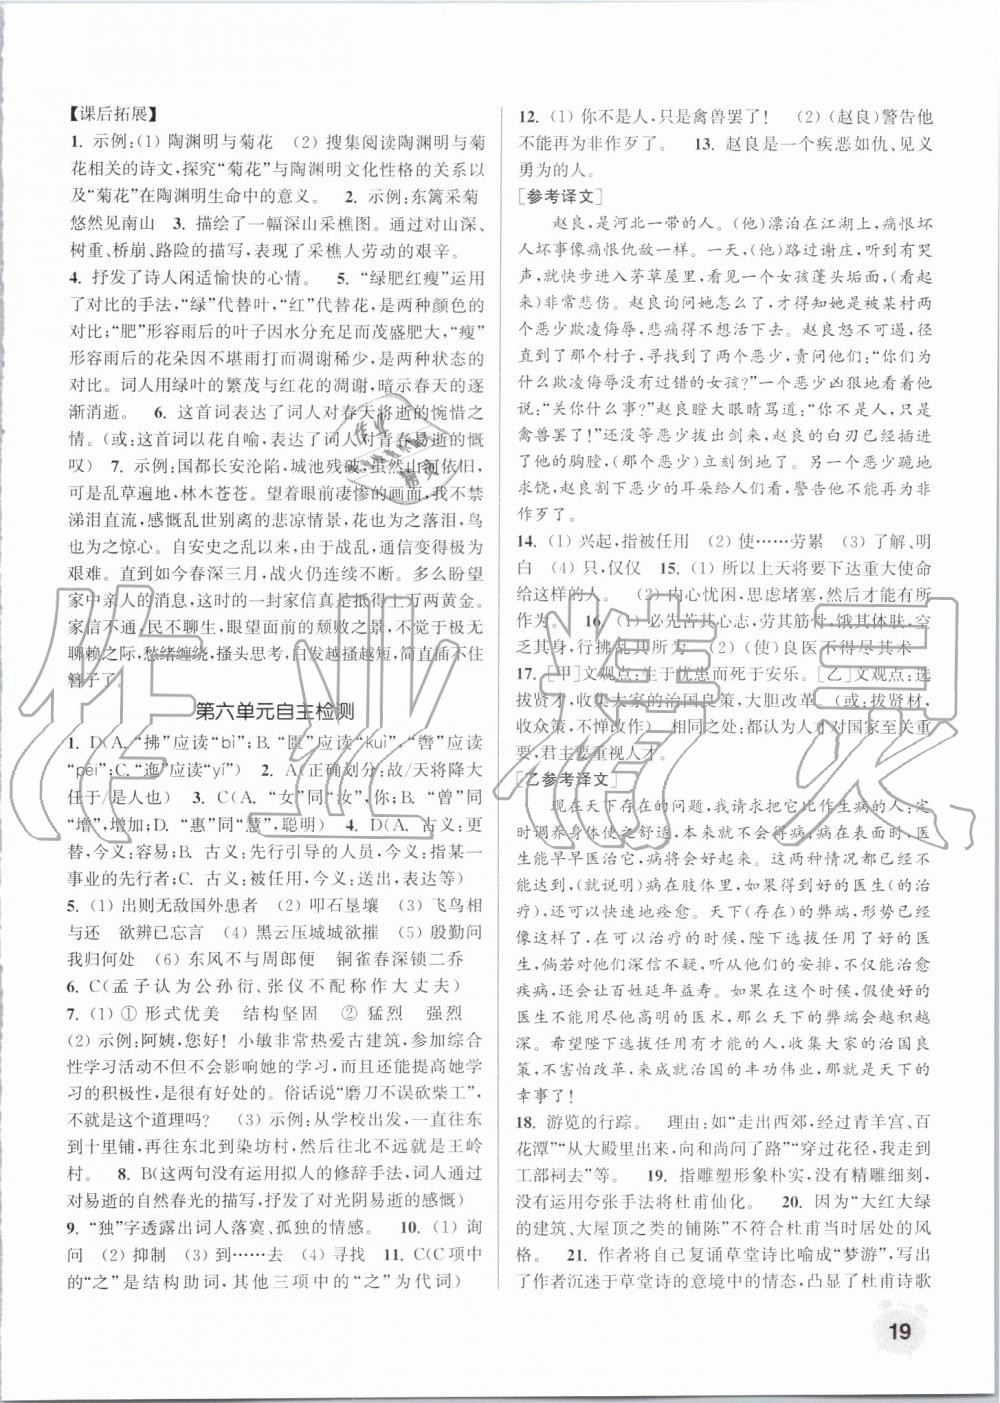 【课后拓展】
1. 示例:(1) 陶渊明与菊花　(2) 搜集阅读陶渊明与菊
花相关的诗文,探究“菊花”与陶渊明文化性格的关系以
及“菊花”在陶渊明生命中的意义。　2. 示例:东篱采菊
悠然见南山　3. 描绘了一幅深山采樵图。通过对山深、
树重、桥崩、路险的描写,表现了采樵人劳动的艰辛。
4. 抒发了诗人闲适愉快的心情。　5. “绿肥红瘦”运用
了对比的手法,“绿”代替叶,“红”代替花,是两种颜色的
对比;“肥”形容雨后的叶子因水分充足而茂盛肥大,“瘦”
形容雨后的花朵因不堪雨打而凋谢稀少,是两种状态的
对比。词人用绿叶的繁茂与红花的凋谢,暗示春天的逐
渐消逝。　6. 这首词表达了词人对春天将逝的惋惜之
情。(或:这首词以花自喻,表达了词人对青春易逝的慨
叹)　7. 示例:国都长安沦陷,城池残破,虽然山河依旧,
可是乱草遍地,林木苍苍。望着眼前凄惨的画面,我不禁
涕泪直流,感慨乱世别离的悲凉情景,花也为之落泪,鸟
也为之惊心。自安史之乱以来,由于战乱,通信变得极为
艰难。直到如今春深三月,战火仍连续不断。多么盼望
家中亲人的消息,这时的一封家信真是抵得上万两黄金。
家信不通,民不聊生,眼望面前的颓败之景,家国动乱,
聊赖之际,愁绪缠绕,搔头思考,白发越搔越短,简直插不住
簪子了。
第六单元自主检测
1. D(A. “拂”应读“bì”;B. “匮”应读“kuì”,“辔”应读
“pèi”;C. “迤”应读“yí”)　2. A(正确划分:故/天将降大
任于/是人也)　3. C(A. “女”同“汝”,你;B. “曾”同
“增”,增加;D. “惠”同“慧”,聪明)　4. D(A. 古义:更
替,今义:容易;B. 古义:先行引导的人员,今义:指某一
事业的先行者;C. 古义:被任用,今义:送出,表达等)
5. (1) 出则无敌国外患者　(2) 叩石垦壤　(3) 飞鸟相
与还　欲辨已忘言　(4) 黑云压城城欲摧　(5) 殷勤问
我归何处　(6) 东风不与周郎便　铜雀春深锁二乔
6. C(孟子认为公孙衍、张仪不配称作大丈夫)
7. (1) ① 形式优美　结构坚固　② 猛烈　强烈
(2) 示例:阿姨,您好! 小敏非常热爱古建筑,参加综合
性学习活动不但不会影响她的学习,而且还能提高她学
习的积极性,是很有好处的。俗话说“磨刀不误砍柴工”,
不就是这个道理吗?　(3) 示例:从学校出发,一直往东
到十里铺,再往东北到染坊村,然后往北不远就是王岭
村。　8. B(这两句没有运用拟人的修辞手法,词人通过
对易逝的自然春光的描写,抒发了对光阴易逝的感慨)
9. “独”字透露出词人落寞、孤独的情感。　10. (1) 询
问　(2) 抑制　(3) 到……去　(4) 寻找　11. C(C项中
的“之”是结构助词,其他三项中的“之”为代词)
12. (1) 你不是人,只是禽兽罢了!　(2) (赵良)警告他
不能再为非作歹了。　13. 赵良是一个疾恶如仇、见义
勇为的人。
[参考译文]
赵良,是河北一带的人。(他)漂泊在江湖上,痛恨坏
人坏事像痛恨仇敌一样。一天,(他)路过谢庄,听到有哭
声,就快步进入茅草屋里,看见一个女孩蓬头垢面,(看起
来)非常悲伤。赵良询问她怎么了,才得知她是被某村两
个恶少欺凌侮辱,痛苦得不想活下去。赵良怒不可遏,径
直到了那个村子,寻找到了两个恶少,责问他们:“你们为
什么欺凌侮辱没有过错的女孩?”一个恶少凶狠地看着他
说:“关你什么事?”赵良瞪大眼睛骂道:“你不是人,只是
禽兽罢了!”还没等恶少拔出剑来,赵良的白刃已经插进
了他的胸膛,(那个恶少)立刻倒地了。另一个恶少跪地
求饶,赵良割下恶少的耳朵给人们看,警告他不能再为非
作歹了。
14. (1) 兴起,指被任用　(2) 使……劳累　(3) 了解、明
白　(4) 只,仅仅　15. (1) 所以上天将要下达重大使命
给这样的人。　(2) 内心忧困,思虑堵塞,然后才能有所
作为。　16. (1) 必先苦其心志,劳其筋骨,饿其体肤,空
乏其身,行拂乱其所为　(2) 使良医不得尽其术
17. [甲]文观点:生于忧患而死于安乐。[乙]文观点:应
收集大家的治国良策,大胆改革。(或:拔贤材,
收众策,不惮改作)　相同之处:都认为人才对国家至关重
要,君主要重视人才。
[乙参考译文]
现在天下存在的问题,我请求把它比作生病的人:定
时调养身体使之舒适,本来就不会得病;病在表面时,医
生能早早医治它,病将会好起来。这两种情况都已经不
能达到,(就说明)病在肢体里,如果得到好的医生(的治
疗),还可以快速地痊愈。天下(存在)的弊端,形势已经
像这样了,在可以治疗的时候,陛下选拔任用了好的医
生,像这样对他们深信不疑,听从他们的安排,不仅仅治愈
疾病,还会让百姓延年益寿。即使这样,如果让好的
的医生不能用尽他高明的医术,那么天下的弊端会越积越
深。希望陛下选拔任用有才能的人,收集大家的治国良
策,不害怕改革,来成就治国的丰功伟业,那么就是天下的
幸事了!
18. 游览的行踪。　理由:如“走出西郊,经过青羊宫、百
花潭”“从大殿里出来,向和尚问了路”“穿过花径,我走到
工部祠去”等。　19. 指雕塑形象朴实,没有精雕细刻,
没有运用夸张手法将杜甫仙化。　20. 因为“大红大绿
的建筑、大屋顶之类的铺陈”不符合杜甫当时居处的风
格。　21. 作者将自己复诵草堂诗比喻成“梦游”,写出
了作者沉迷于草堂诗的意境中的情态,凸显了杜甫诗歌
19